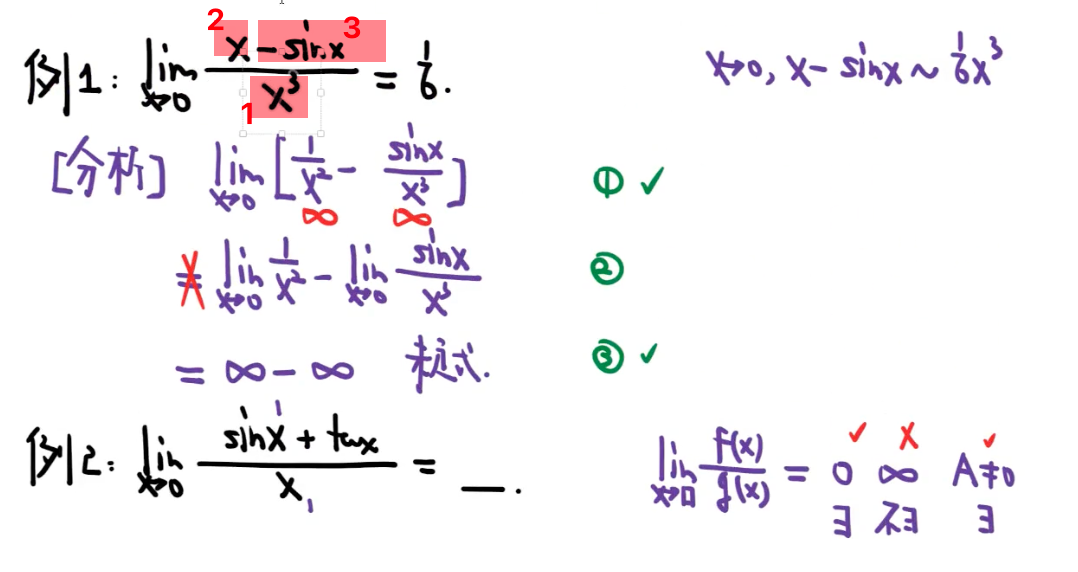 2 3
例1: lim x→0 (x - sinx)/x³ = 1/6.
1
x→0, x - sinx ~ 1/6 x³
[分析] lim x→0 [1/x² - sinx/x³]
∞ ∞
① ✓
= lim x→0 1/x² - lim x→0 sinx/x³
②
= ∞ - ∞ 未定式.
③ ✓
例2: lim x→0 (sinx + tanx)/x = __.
1
1
✓ ✗ ✓
lim x→□ f(x)/g(x) = 0 ∞ A≠0
∃ 不∃ ∃